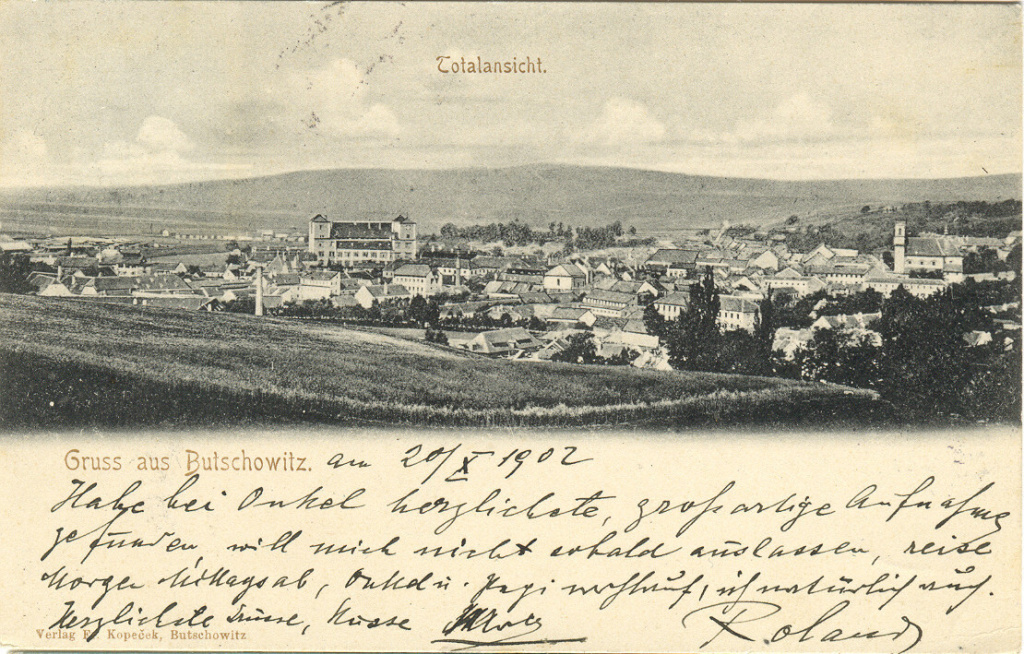 Totalansicht.
Gruss aus Butschowitz. am 20/X 1902
Habe bei Onkel herzlichste, großartige Aufnahme
gefunden, will mich nicht sobald auslassen, reise
Morgen Mittags ab, Onkel u. wohlauf, ich natürlich auch.
Herzlichste Küsse
Roland
Verlag Fr. Kopeček, Butschowitz